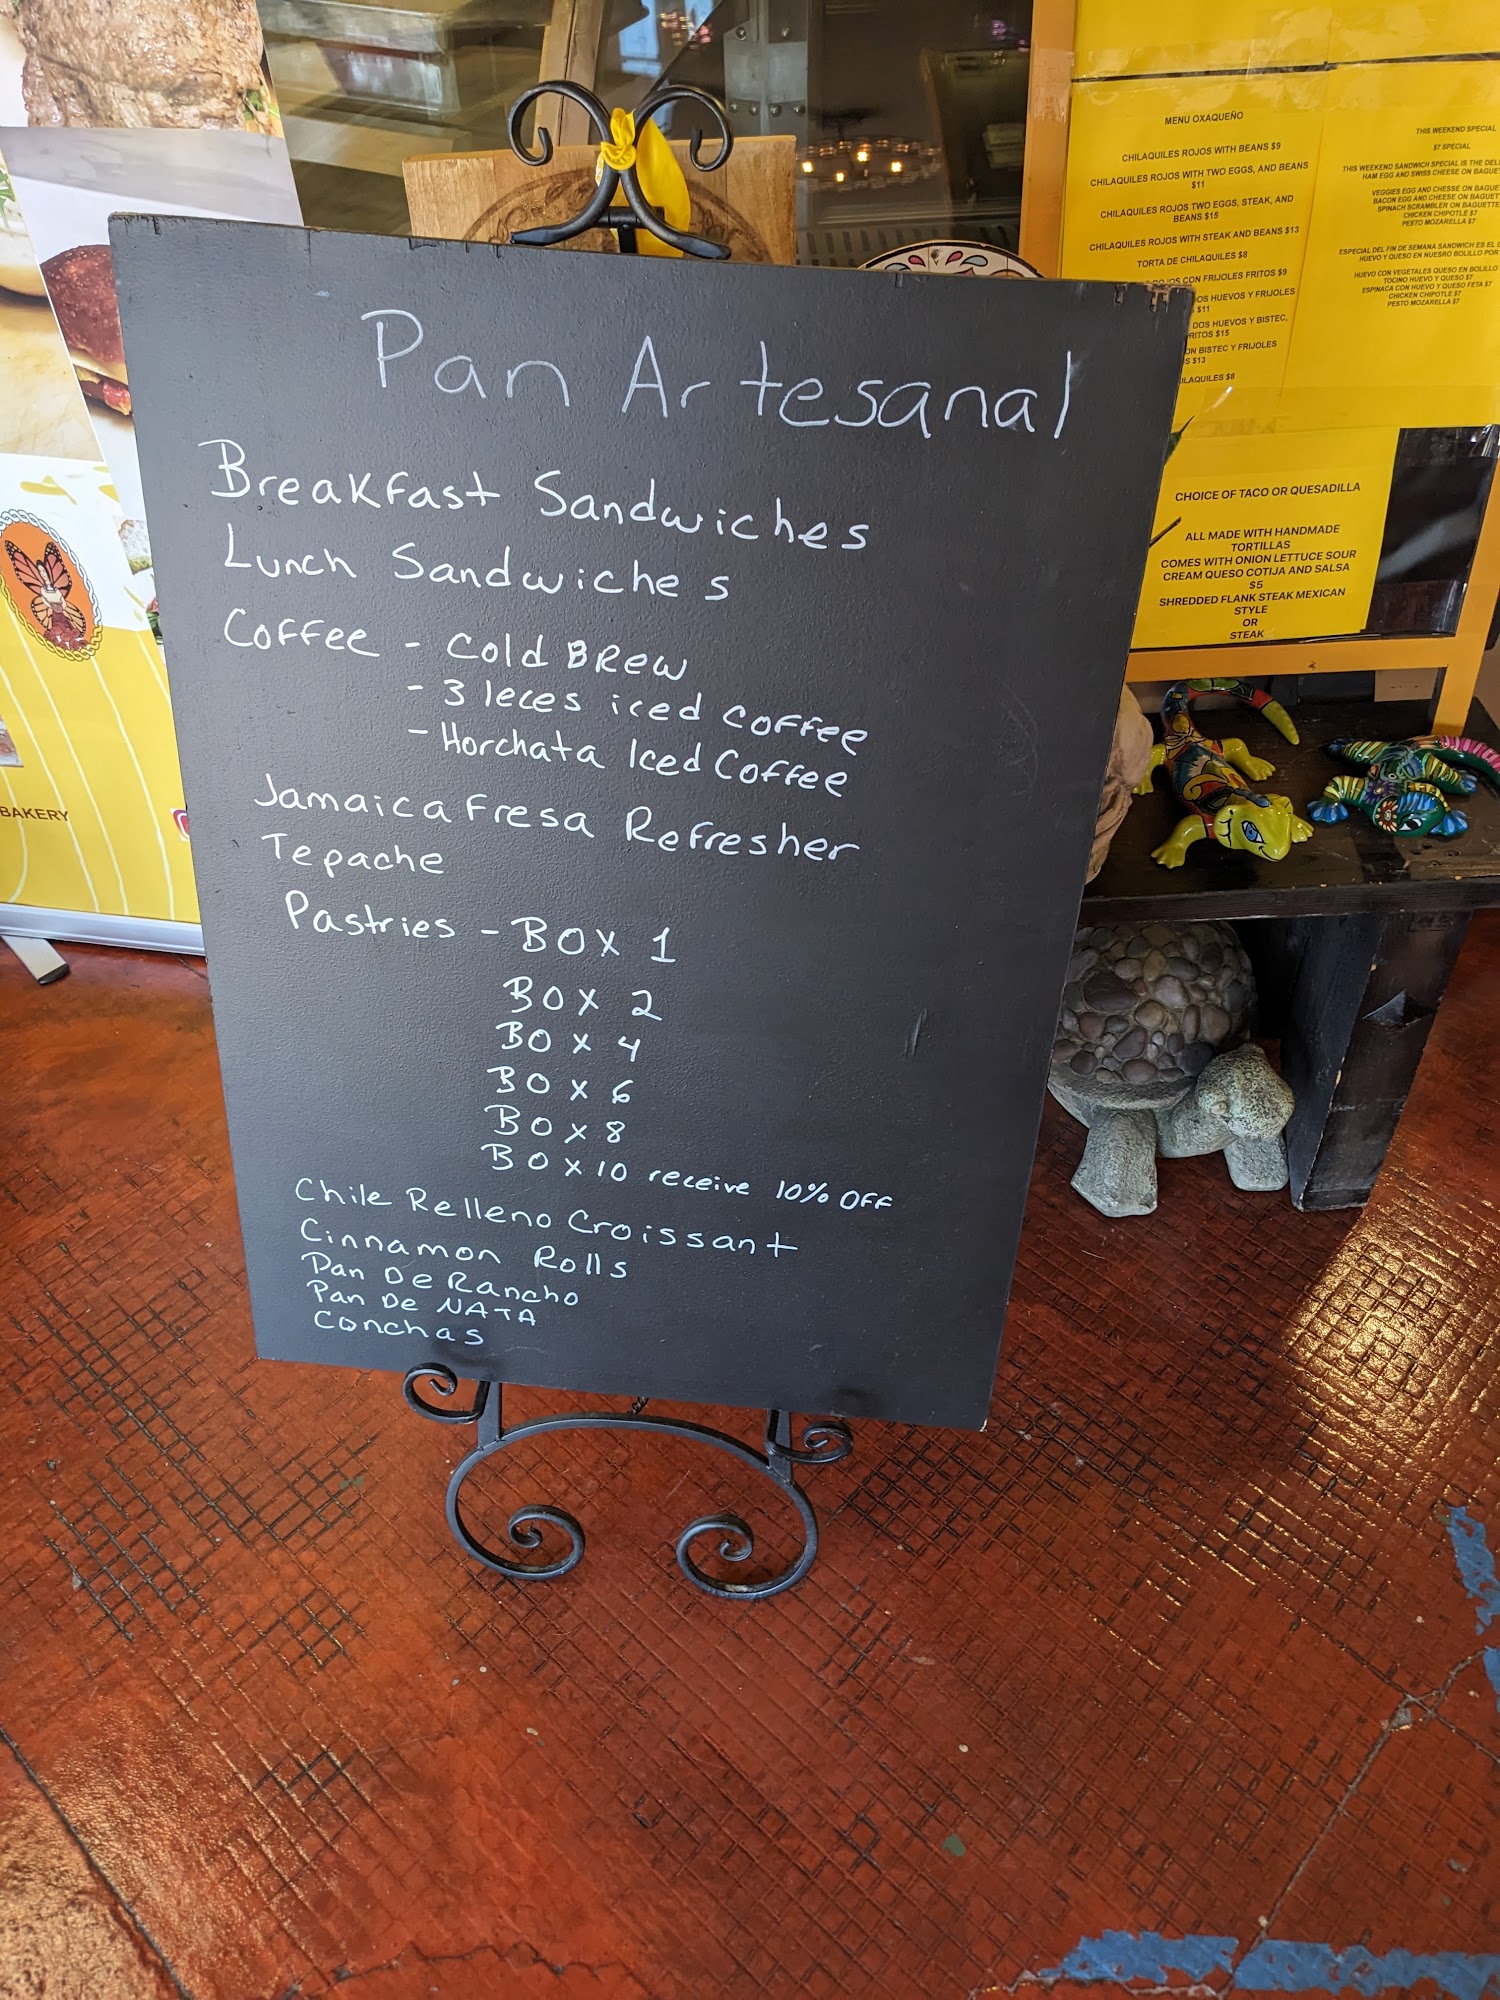 Pan Artesanal
Breakfast Sandwiches
Lunch Sandwiches
Coffee - Cold BREW
- 3 leces iced coffee
- Horchata Iced Coffee
Jamaica Fresa Refresher
Tepache
Pastries - BOX 1
BOX 2
BOX 4
BOX 6
BOX 8
BOX 10 receive 10% OFF
Chile Relleno Croissant
Cinnamon Rolls
Pan De Rancho
Pan De NATA
Conchas
BAKERY
MENU OXAQUEÑO
CHILAQUILES ROJOS WITH BEANS $9
CHILAQUILES ROJOS WITH TWO EGGS, AND BEANS
$11
CHILAQUILES ROJOS TWO EGGS, STEAK, AND
BEANS $15
CHILAQUILES ROJOS WITH STEAK AND BEANS $13
TORTA DE CHILAQUILES $8
CON FRIJOLES FRITOS $9
HUEVOS Y FRIJOLES
$11
DOS HUEVOS Y BISTEC,
$15
BISTEC Y FRIJOLES
$13
$8
THIS WEEKEND SPECIAL
$7 SPECIAL
THIS WEEKEND SANDWICH SPECIAL IS THE
HAM EGG AND SWISS CHEESE ON
VEGGIES EGG AND CHESSE ON
BACON EGG AND CHEESE ON
SPINACH SCRAMBLER ON BAGUETTE
CHICKEN CHIPOTLE $7
PESTO MOZARELLA $7
ESPECIAL DEL FIN DE SEMANA SANDWICH ES EL
HUEVO Y QUESO EN NUESRO BOLILLO POR
HUEVO CON VEGETALES QUESO EN BOLILLO
TOCINO HUEVO Y QUESO $7
ESPINACA CON HUEVO Y QUESO FETA $7
CHICKEN CHIPOTLE $7
PESTO MOZARELLA $7
CHOICE OF TACO OR QUESADILLA
ALL MADE WITH HANDMADE
TORTILLAS
COMES WITH ONION LETTUCE SOUR
CREAM QUESO COTIJA AND SALSA
$5
SHREDDED FLANK STEAK MEXICAN
STYLE
OR
STEAK